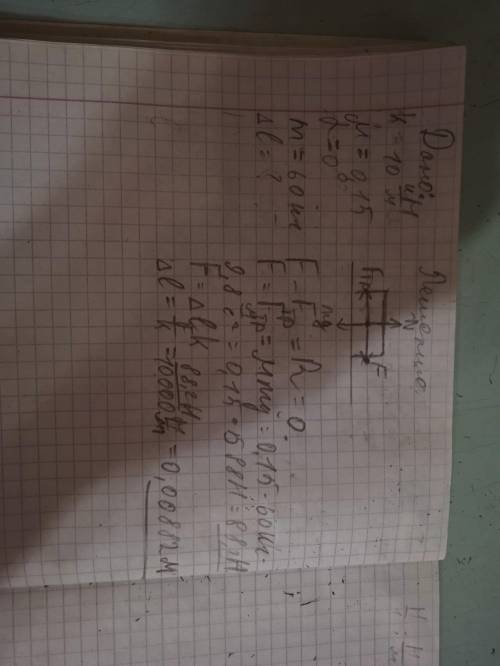 Дано:
k = 10 кН/м
μ = 0,15
α = 0°
m = 60 кг
Δl = ?
Решение.
N
Fтр
F
mg
F - Fтр = R = 0
F = Fтр = μmg = 0,15 · 60 кг ·
9,8 = 0,15 · 588Н = 88,2Н
F = Δl k
Δl = F/k = 88,2Н/10000 Н/м = 0,00882м